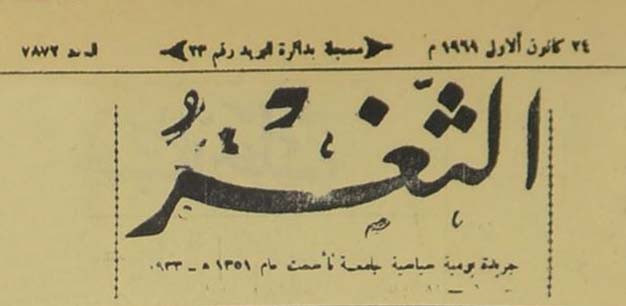 ٢٤ كانون الاول ١٩٦١ م مسجلة بدائرة البريد رقم ٢٣ العدد ٧٨٧٢
الثَّغْرُ
جريدة يومية سياسية جامعة تأسست عام ١٣٥١ ه - ٩٣٣